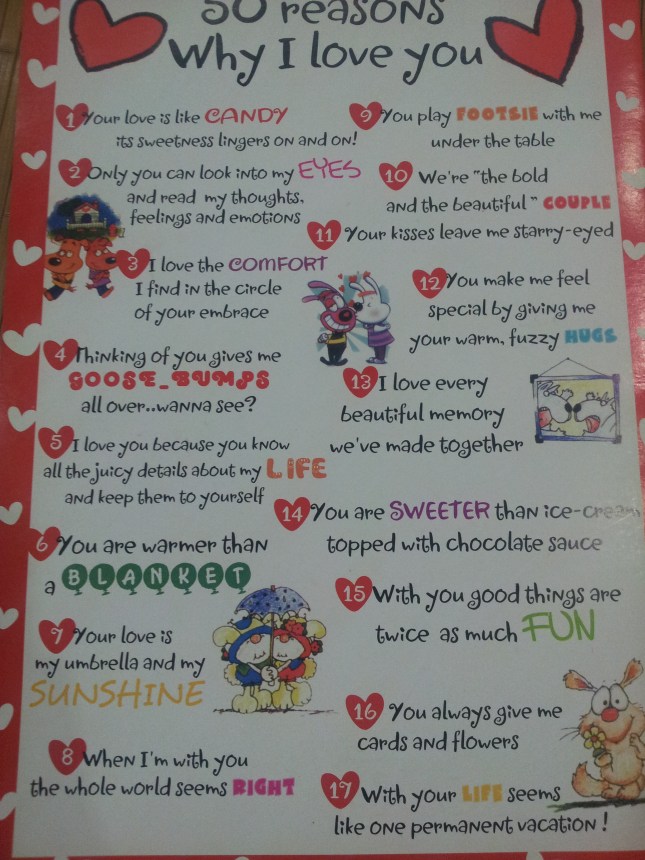 50 reasons
Why I love you
1 Your love is like CANDY
its sweetness lingers on and on!
2 Only you can look into my EYES
and read my thoughts,
feelings and emotions
3 I love the COMFORT
I find in the circle
of your embrace
4 Thinking of you gives me
GOOSE_BUMPS
all over..wanna see?
5 I love you because you know
all the juicy details about my LIFE
and keep them to yourself
6 You are warmer than
a BLANKET
7 Your love is
my umbrella and my
SUNSHINE
8 When I'm with you
the whole world seems RIGHT
9 You play FOOTSIE with me
under the table
10 We're "the bold
and the beautiful" COUPLE
11 Your kisses leave me starry-eyed
12 You make me feel
special by giving me
your warm, fuzzy HUGS
13 I love every
beautiful memory
we've made together
14 You are SWEETER than ice-cream
topped with chocolate sauce
15 With you good things are
twice as much FUN
16 You always give me
cards and flowers
17 With your LIFE seems
like one permanent vacation!